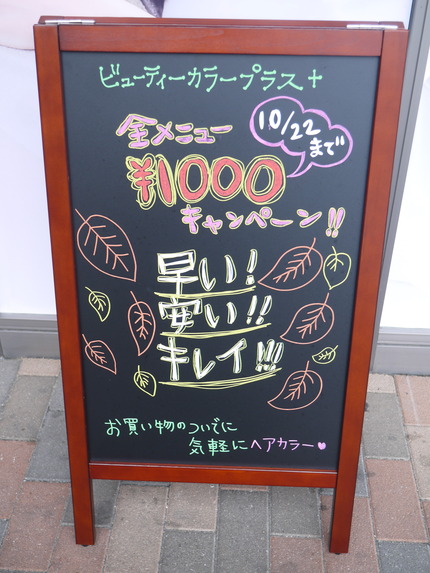 ビューティーカラープラス+
全メニュー
10/22
まで
¥1000
キャンペーン!!
早い!
安い!!
キレイ!!!
お買い物のついでに
気軽にヘアカラー♥